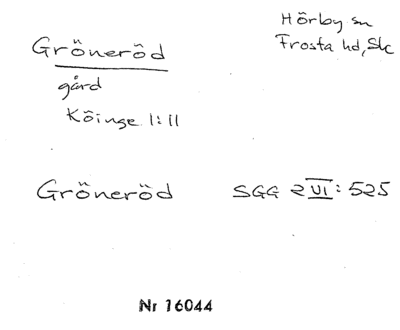 Gröneröd
Hörby sn
Frosta hd, Sk
gård
Köinge 1:11
Gröneröd SGG 2 VI: 525
Nr 16044